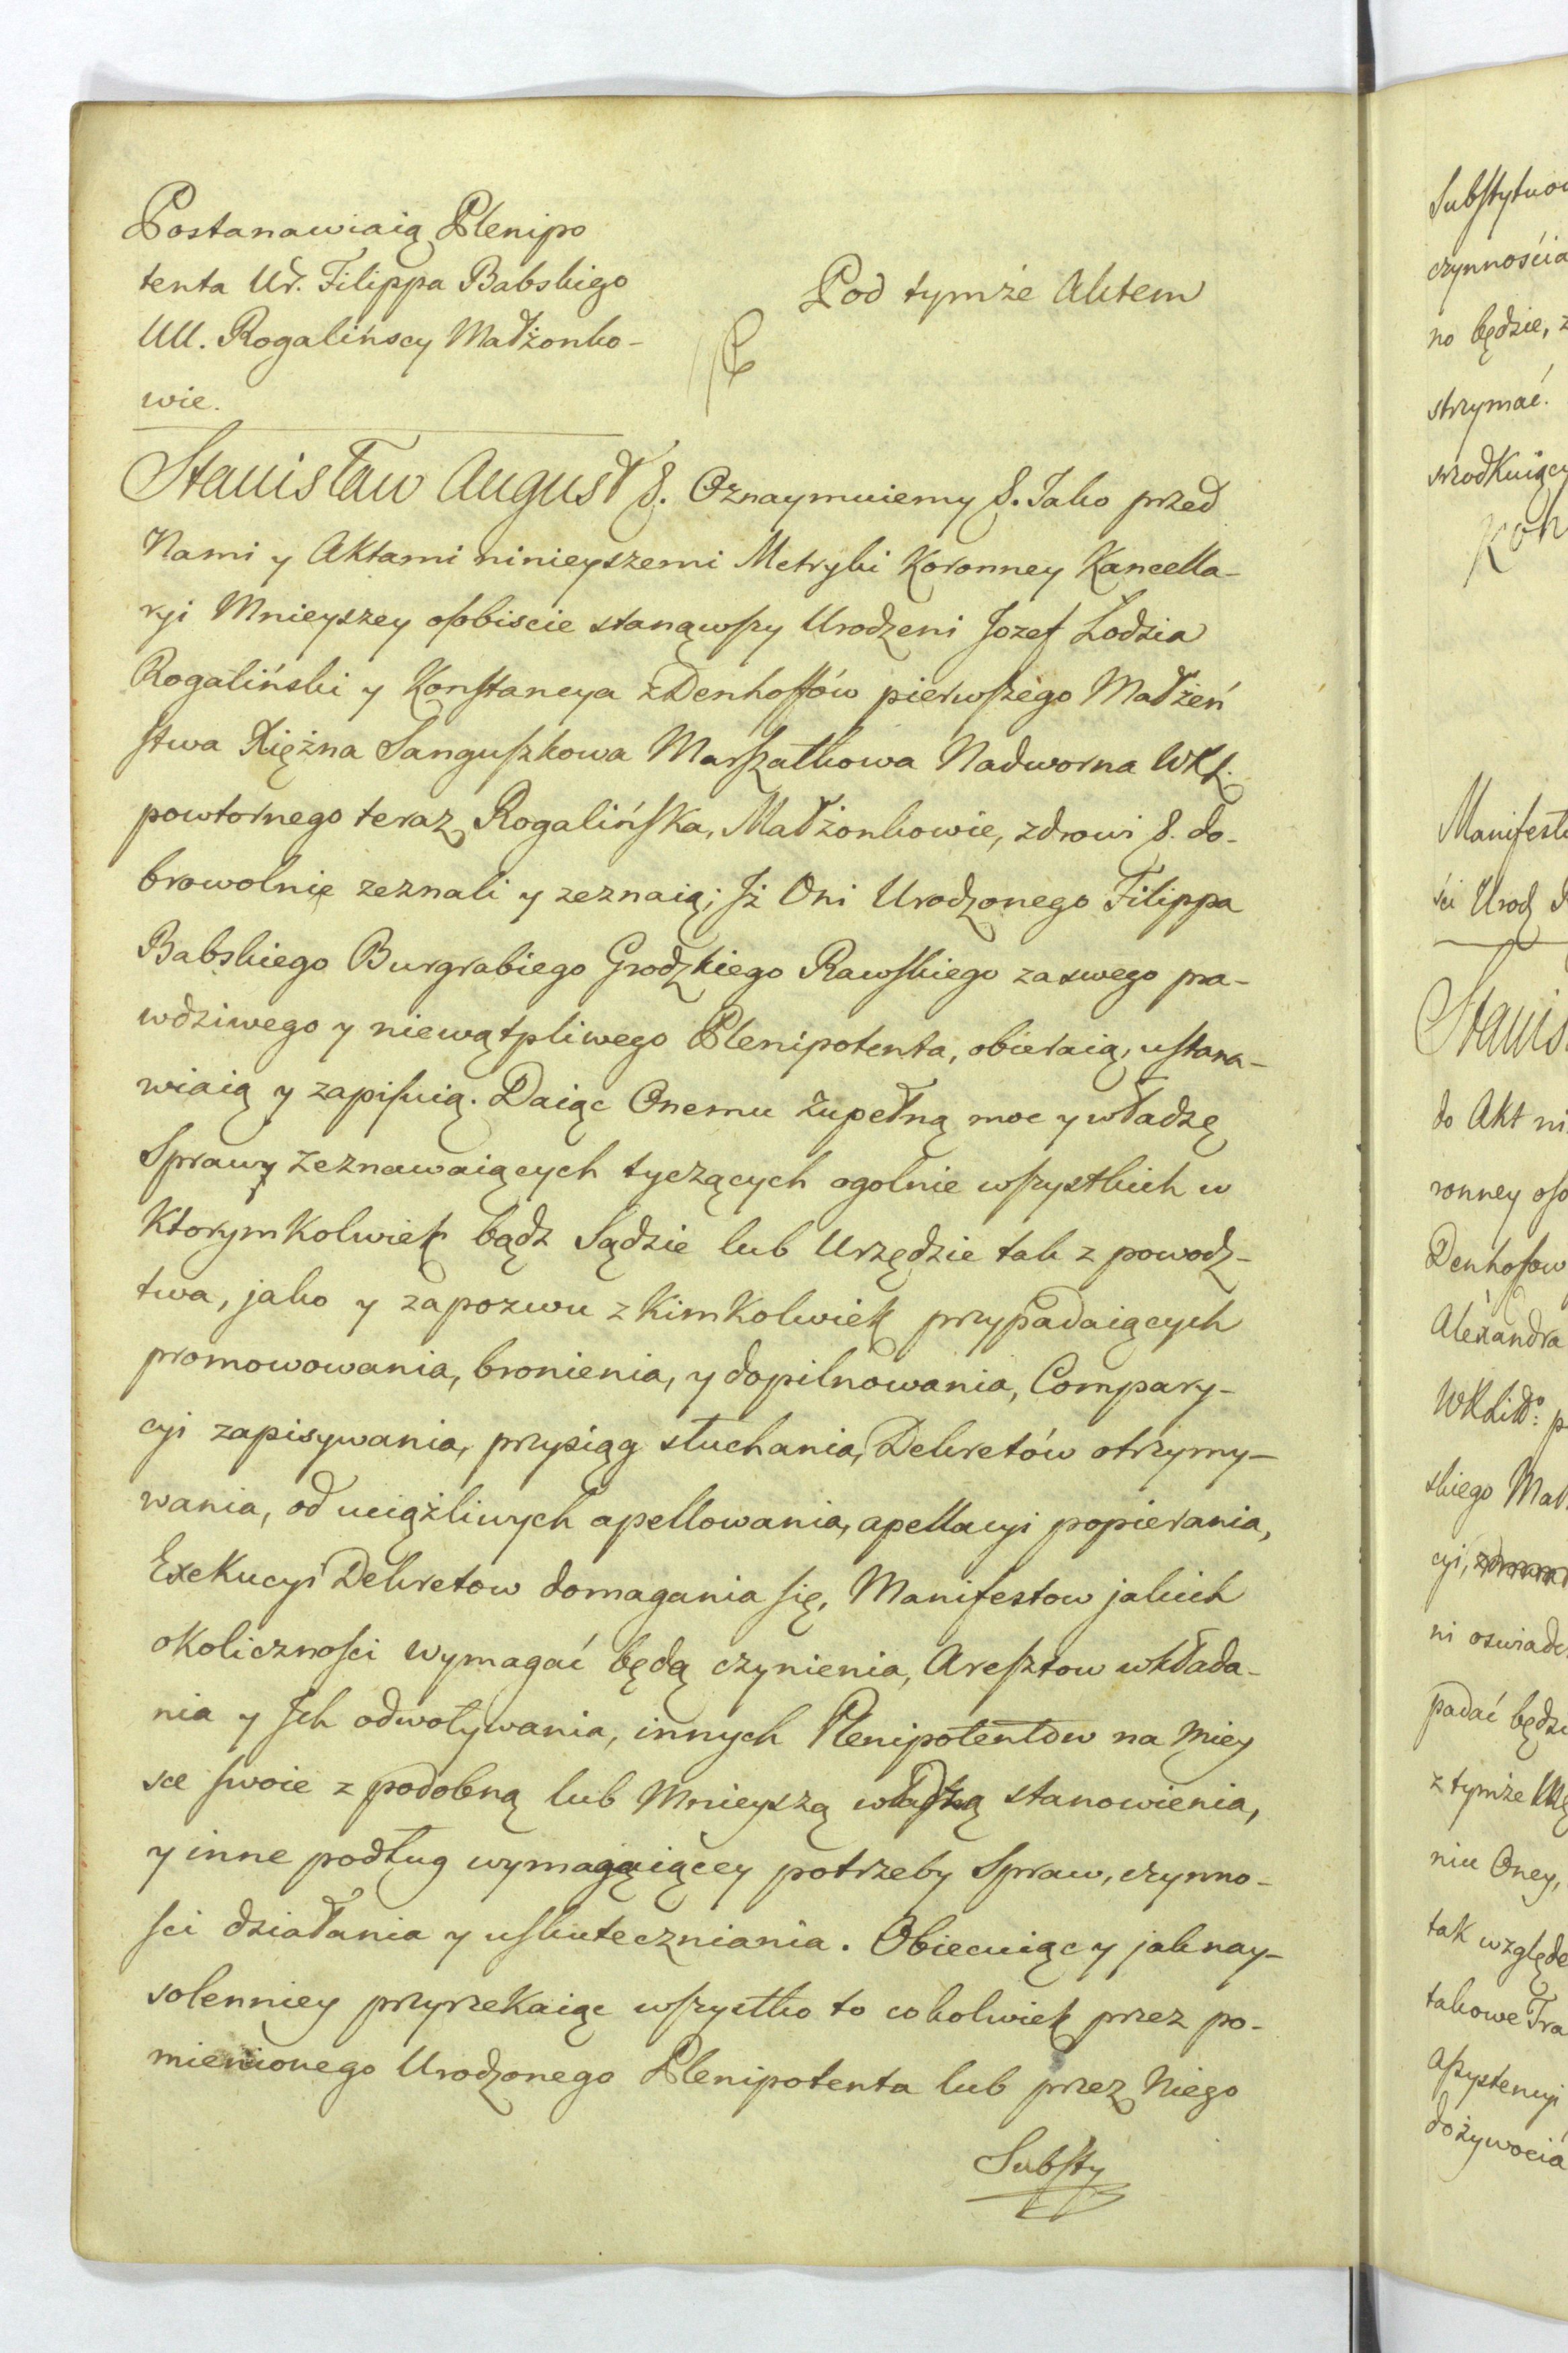 Postanawiaią Plenipo
tenta Ur. Filippa Babskiego
UU. Rogalińscy Małżonko-
wie.
Pod tymże Aktem
Stanisław August &. Oznaymuiemy &. Jako przed
Nami y Aktami ninieyszemi Metryki Koronney Kancella-
ryi Mnieyszey osobiscie stanąwszy Urodzeni Jozef Łodzia
Rogaliński y Konstancya z Denhoffów pierwszego Małżeń
stwa Xiężna Sanguszkowa Marszałkowa Nadworna WXL.
powtornego teraz Rogalińska, Małżonkowie, zdrowi &. do-
browolnie zeznali y zeznaią; Jż Oni Urodzonego Filippa
Babskiego Burgrabiego Grodzkiego Rawskiego za swego pra-
wdziwego y niewątpliwego Plenipotenta, obieraią, ustana-
wiaią y zapisuią. Daiąc Onemu zupełną moc y władzę
Sprawy Zeznawaiących tyczących ogolnie wszystkich w
Ktorymkolwiek bądz Sądzie lub Urzędzie tak z powodz-
twa, jako y zapozwu z kimkolwiek przypadaiących
promowowania, bronienia, y dopilnowania, Compary-
cyi zapisywania, przysiąg słuchania, Dekretów otrzymy-
wania, od uciążliwych apellowania, apellacyi popierania,
Exekucyi Dekretow domagania się, Manifestow jakich
okoliczności wymagać będą czynienia, Aresztow wkłada-
nia y Jch odwoływania, innych Plenipotentow na miey
sce swoie z podobną lub Mnieyszą władzą stanowienia,
y inne podług wymagaiącey potrzeby Spraw, czynno-
ści działania y uskuteczniania. Obiecuiąc y jaknay-
solenniey przyrzekaiąc wszystko to cokolwiek przez po-
mienionego Urodzonego Plenipotenta lub przez Niego
Substy
Substytuow
czynnościa
no będzie, z
strzymać.
Manifest
ści Urodz
Stanis
do Akt ni
ronney oso
Denhofow
Alexandra
WXLitt: p
skiego Mał
cyi,
ni oswiadc
padać będzi
z tymże
niu Oney,
tak względe
takowe Tra
assystencyi
dożywocia